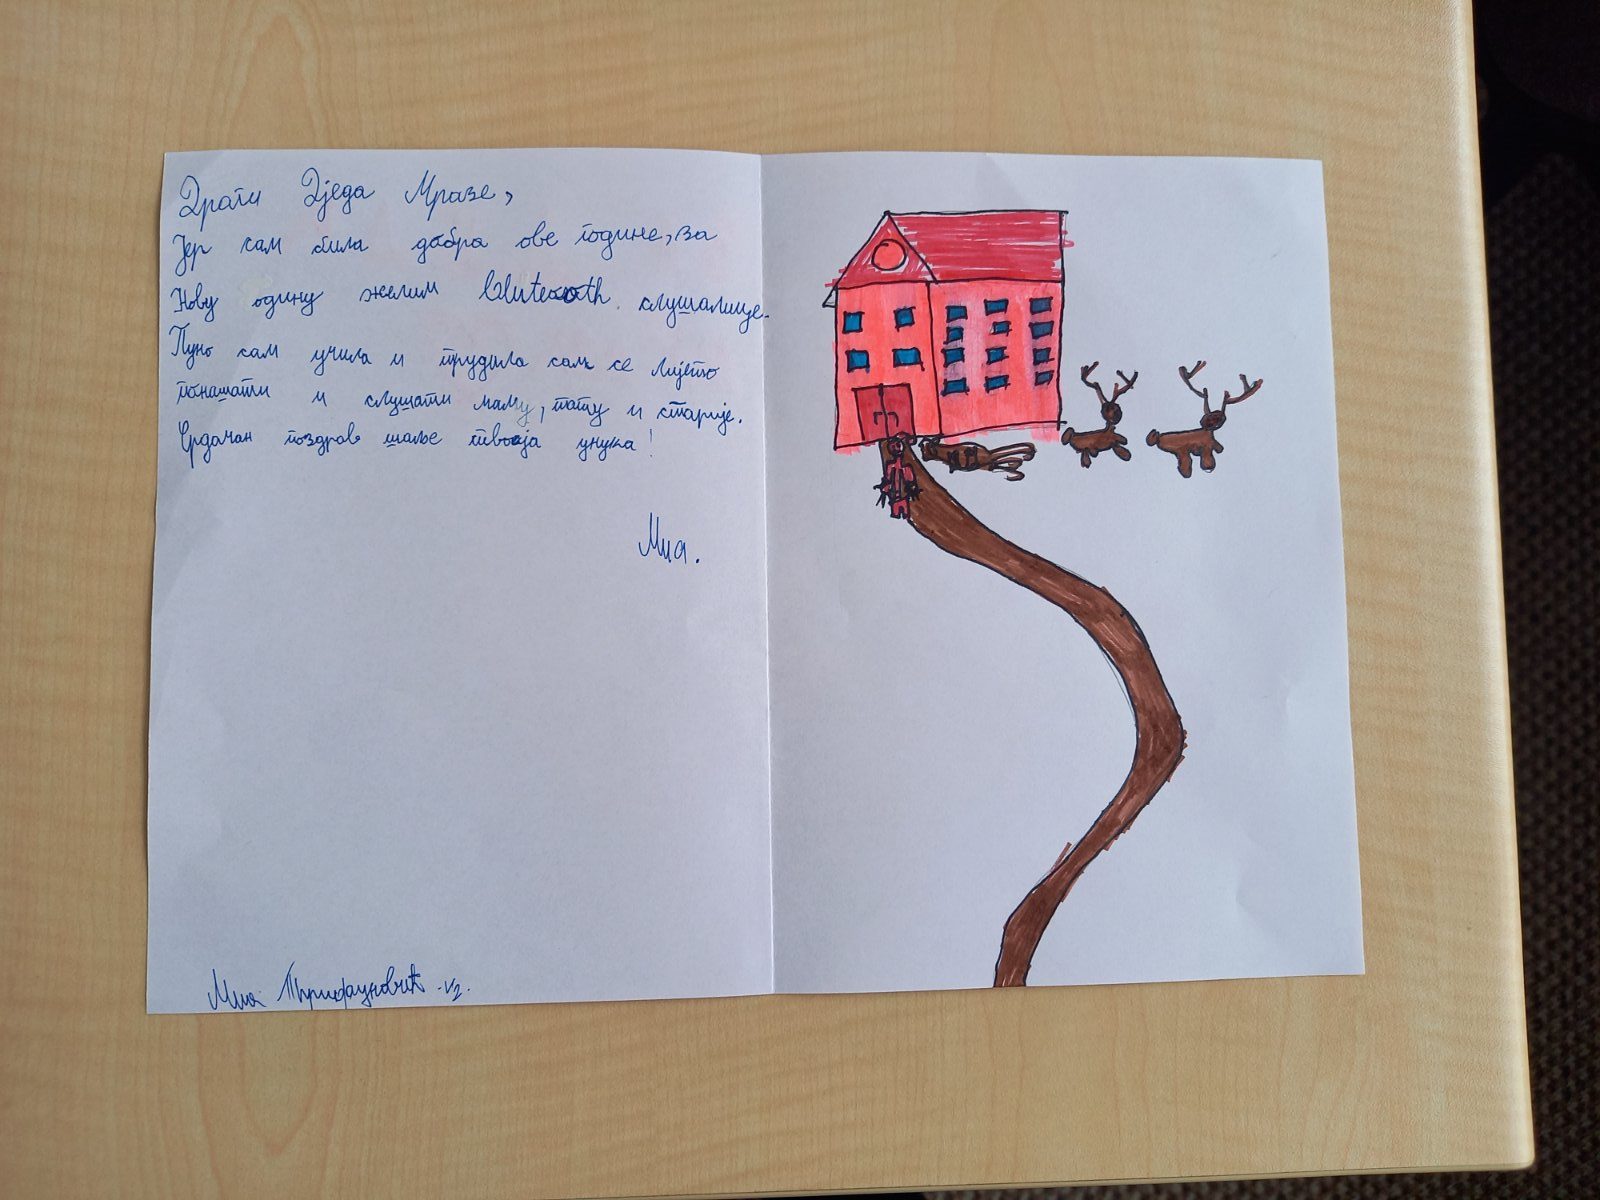 Драги Дједа Мразе,
Јер сам била добра ове године, за
Нову одину желим bluteooth слушалице.
Пуно сам учила и трудила сам се лијепо
понашати и слушати маму, тату и старије.
Срдачан поздрав шаље твоја унука!
Миа.
Миа V2.